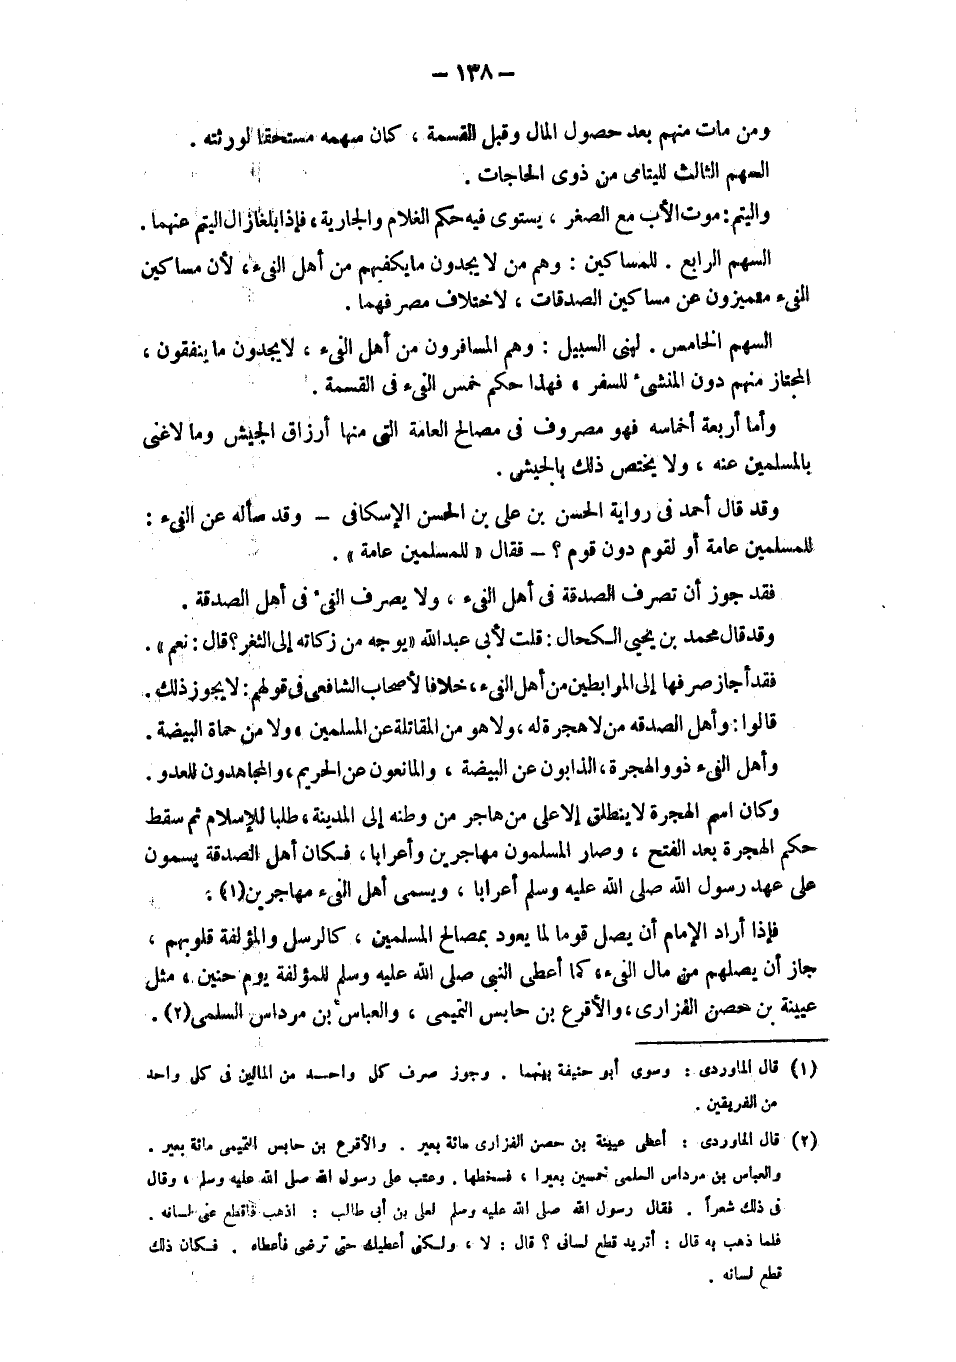 — ١٣٨ —
ومن مات منهم بعد حصول المال وقبل القسمة ، كان سهمه مستحقا لورثته .
السهم الثالث لليتامى من ذوى الحاجات .
واليتم : موت الأب مع الصغر ، يستوى فيه حكم الغلام والجارية ، فإذا بلغا زال اليتم عنهما .
السهم الرابع . للمساكين : وهم من لا يجدون ما يكفيهم من أهل الفىء ، لأن مساكين
الفىء متميزون عن مساكين الصدقات ، لاختلاف مصرفهما .
السهم الخامس . لبنى السبيل : وهم المسافرون من أهل الفىء ، لا يجدون ما ينفقون ،
المجتاز منهم دون المنشىء للسفر ، فهذا حكم خمس الفىء فى القسمة .
وأما أربعة أخماسه فهو مصروف فى مصالح العامة التى منها أرزاق الجيش وما لا غنى
بالمسلمين عنه ، ولا يختص ذلك بالجيش .
وقد قال أحمد فى رواية الحسن بن على بن الحسن الإسكافى — وقد سأله عن الفىء :
للمسلمين عامة أو لقوم دون قوم ؟ — فقال « للمسلمين عامة » .
فقد جوز أن تصرف الصدقة فى أهل الفىء ، ولا يصرف الفىء فى أهل الصدقة .
وقد قال محمد بن يحيى الكحال : قلت لأبى عبد الله « يوجه من زكاته إلى الثغر ؟ قال : نعم » .
فقد أجاز صرفها إلى المرابطين من أهل الفىء ، خلافا لأصحاب الشافعى فى قولهم : لا يجوز ذلك .
قالوا : وأهل الصدقه من لا هجرة له ، ولا هو من المقاتلة عن المسلمين ، ولا من حماة البيضة .
وأهل الفىء ذوو الهجرة ، الذابون عن البيضة ، والمانعون عن الحريم ، والمجاهدون للعدو .
وكان اسم الهجرة لا ينطلق إلا على من هاجر من وطنه إلى المدينة ، طلبا للإسلام ثم سقط
حكم الهجرة بعد الفتح ، وصار المسلمون مهاجرين وأعرابا ، فكان أهل الصدقة يسمون
على عهد رسول الله صلى الله عليه وسلم أعرابا ، ويسمى أهل الفىء مهاجرين (١) :
فإذا أراد الإمام أن يصل قوما لما يعود بمصالح المسلمين ، كالرسل والمؤلفة قلوبهم ،
جاز أن يصلهم من مال الفىء ، كما أعطى النبى صلى الله عليه وسلم للمؤلفة يوم حنين ، مثل
عيينة بن حصن الفزارى ، والأقرع بن حابس التميمى ، والعباس بن مرداس السلمى (٢) .
(١) قال الماوردى : وسوى أبو حنيفة بينهما . وجوز صرف كل واحد من المالين فى كل واحد
من الفريقين .
(٢) قال الماوردى : أعطى عيينة بن حصن الفزارى مائة بعير . والأقرع بن حابس التميمى مائة بعير .
والعباس بن مرداس السلمى خمسين بعيرا ، فسخطها . وعتب على رسول الله صلى الله عليه وسلم ، وقال
فى ذلك شعراً . فقال رسول الله صلى الله عليه وسلم لعلى بن أبى طالب : اذهب فاقطع عنى لسانه .
فلما ذهب به قال : أتريد قطع لسانى ؟ قال : لا ، ولكنى أعطيك حتى ترضى فأعطاه . فكان ذلك
قطع لسانه .